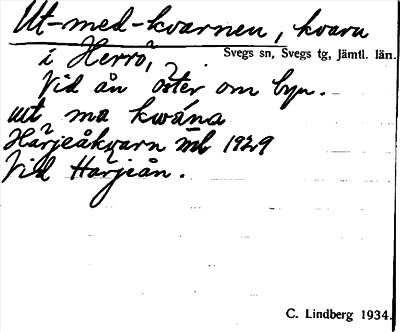 Ut-med-kvarnen, kvarn
i Herrö,
Svegs sn, Svegs tg, Jämtl. län.
Vid ån öster om byn.
ut ma kwána
Härjeåkvarn ml 1929
Vid Härjeån.
C. Lindberg 1934.